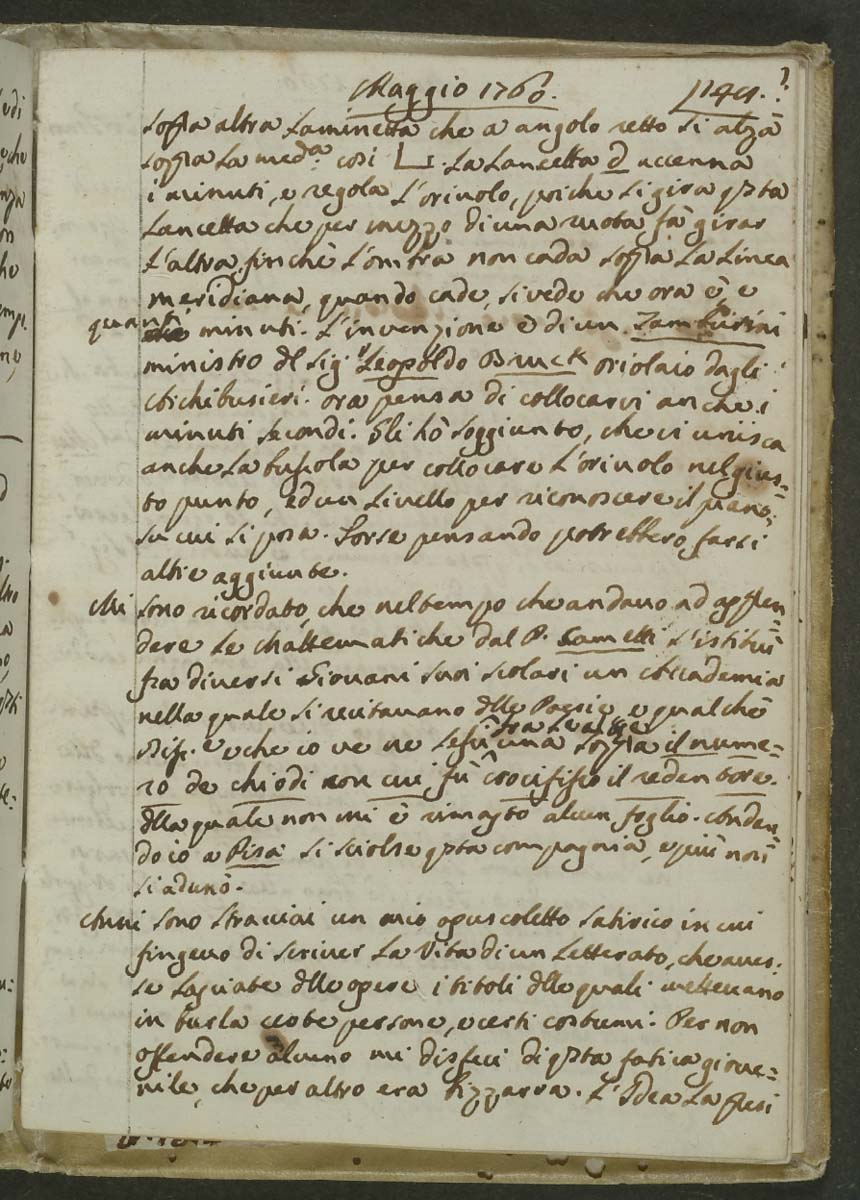 Maggio 1760.
sopra altra Laminetta che a angolo retto si alza
sopra La med.a così L. La Lancetta d accenna
i minuti, e regola L'orivolo, poiche si gira qsta
Lancetta che per mezzo di una ruota fà girar
L'altra, finchè L'ombra non cada sopra La Linea
meridiana, quando cade, si vede che ora è, e
quanti minuti. L'invenzione è di un Zamburini
ministro dl Sig. Leopoldo Bruck oriolaio dagli
Archibusieri. ora pensa di collocarvi anche i
minuti secondi. Gli hò soggiunto, che vi unisca
anche La bussola per collocare L'orivolo nel gius=
to punto, ed un Livello per riconoscere il piano,
su cui si posa. Forse pensando potrebbero farsi
altre aggiunte.
Mi sono ricordato, che nel tempo che andavo ad appren
dere Le Mattematiche dal P. L'istituì
fra diversi Giovani suoi scolari un Accademia
nella quale si recitavano dlle Poesie, e qualchè
e che io ve ne Lessi una fra L'altre sopra il nume=
ro de chiodi con cui fù crocifisso il redentore.
dlla quale non mi è rimasto alcun foglio. Anden
do io a Pisa si sciolse qsta compagnia, e più non
si adunò.
Anni sono stracciai un mio opuscoletto satirico in cui
fingevo di scriver La Vita di un Letterato, che aves=
se Lasciate dlle opere i titoli dlle quali mettevano
in burla certe persone, e certi costumi. Per non
offendere alcuno mi disfeci di qsta fatica giove=
nile, che per altro era bizzarra. L'Idea La presi